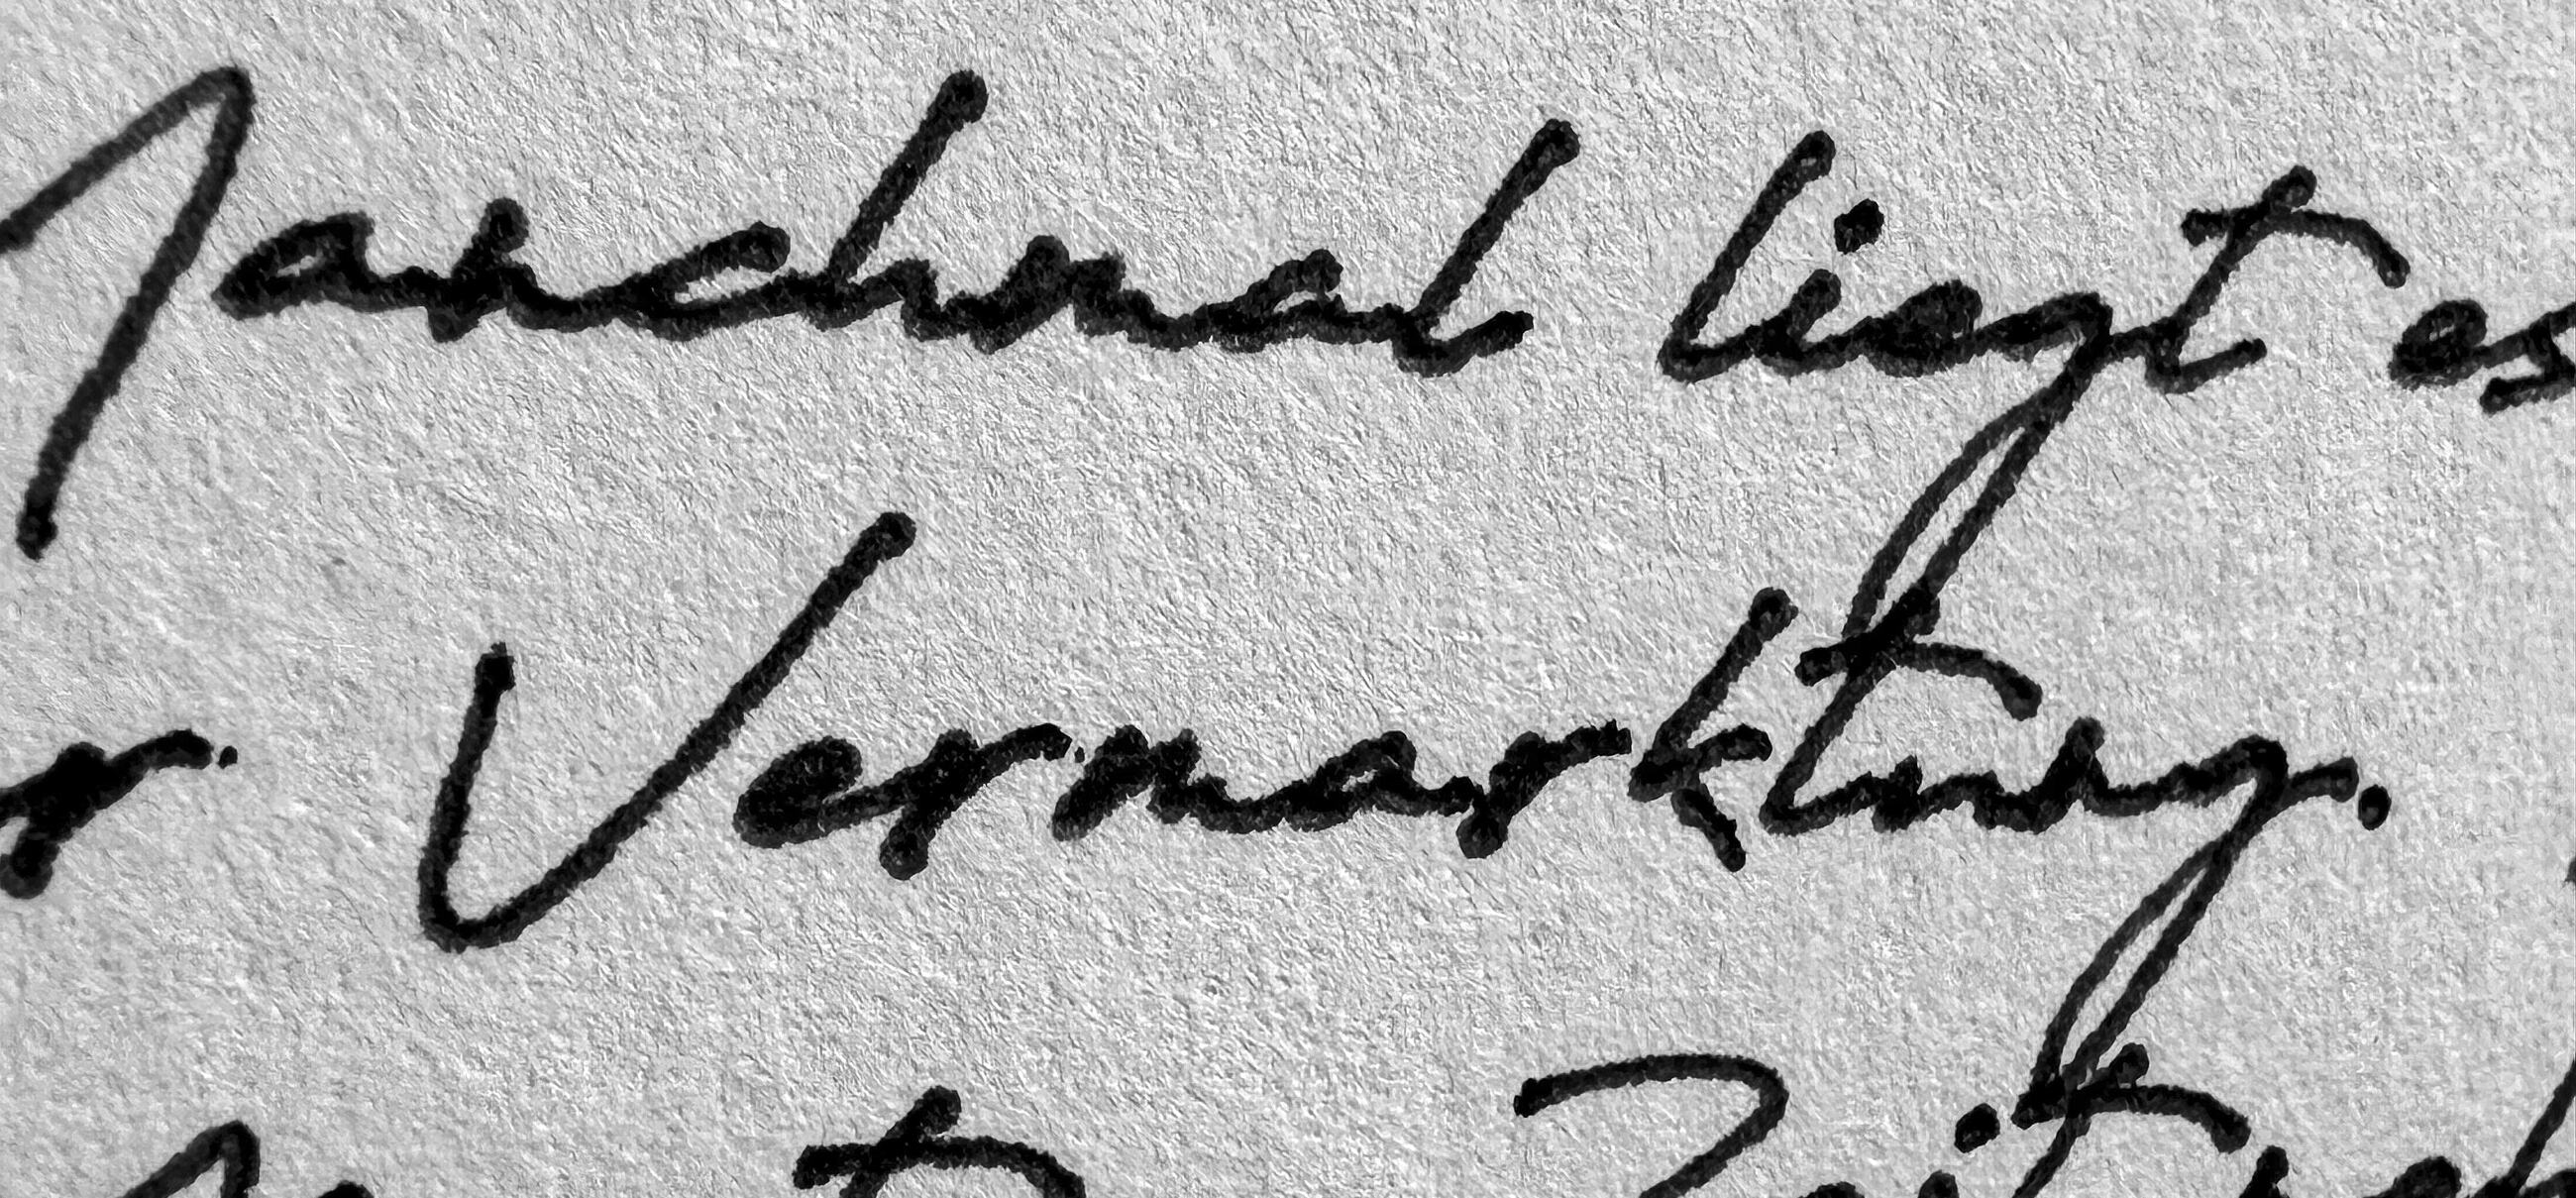 Manchmal liegt es
r. Vermarktung.